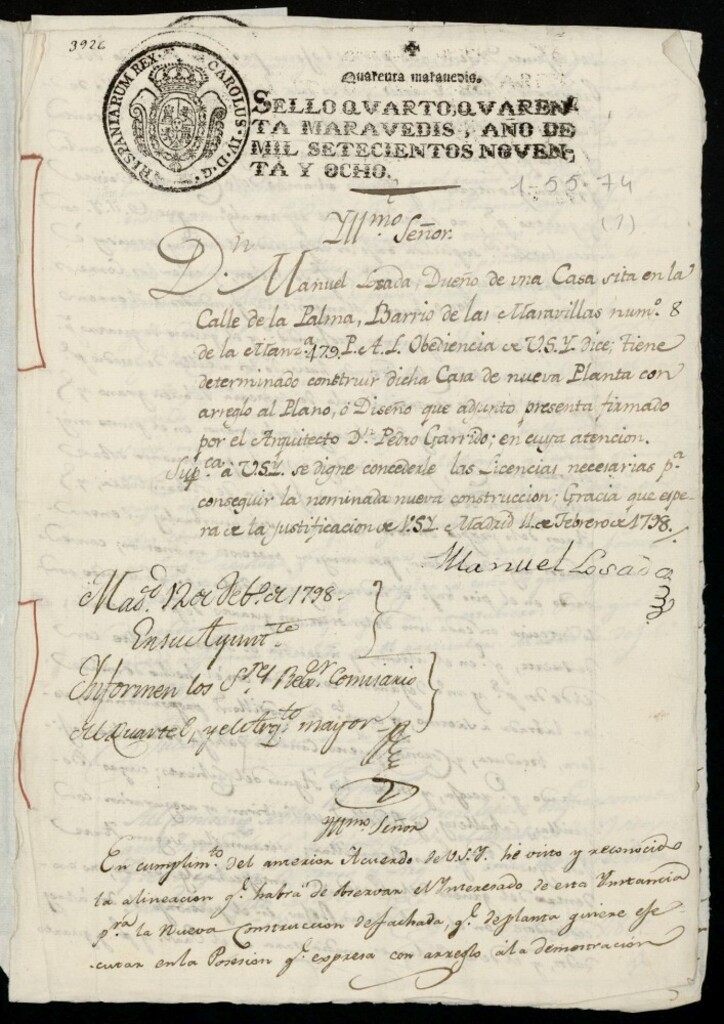 392c
HISPANIARUM REX. CAROLUS. IV. D. G.
Quarenta maravedis.
SELLO QVARTO, QVAREN-
TA MARAVEDIS, AÑO DE
MIL SETECIENTOS NOVEN-
TA Y OCHO.
1-55-74
(7)
Yllmo Señor.
Dn. Manuel Losada, Dueño de una Casa sita en la
Calle de la Palma, Barrio de las Maravillas numº. 8
de la Manzª. 479. P. A. L. Obediencia de V.S.Y. Dice; tiene
determinado construir dicha Casa de nueva Planta con
arreglo al Plano, ó Diseño que adjunto presenta firmado
por el Arquitecto Dn. Pedro Garrido; en cuya atencion.
Supca. à V.S.Y. se digne concederle las Licencias necesarias pª.
conseguir la nominada nueva construccion: Gracia que espe-
ra de la justificacion de V.S.Y. Madrid 11 de Febrero de 1798.
Manuel Losada
Madd. 12 de Febº. de 1798.
En su Ayuntto.
Informen los Sres Regor. Comisario
del Quartel, y el Arqto mayor
Yllmo Señor
En cumplimto. del anterior Acuerdo de V.S.Y. hé visto y reconocido
la alineacion qe. habrá de observar el Interesado de esta Instancia
pra la Nueva Construccion de fachada, qe. de planta quiere eje-
cutar en la Posesion qe. expresa con arreglo à la demostracion